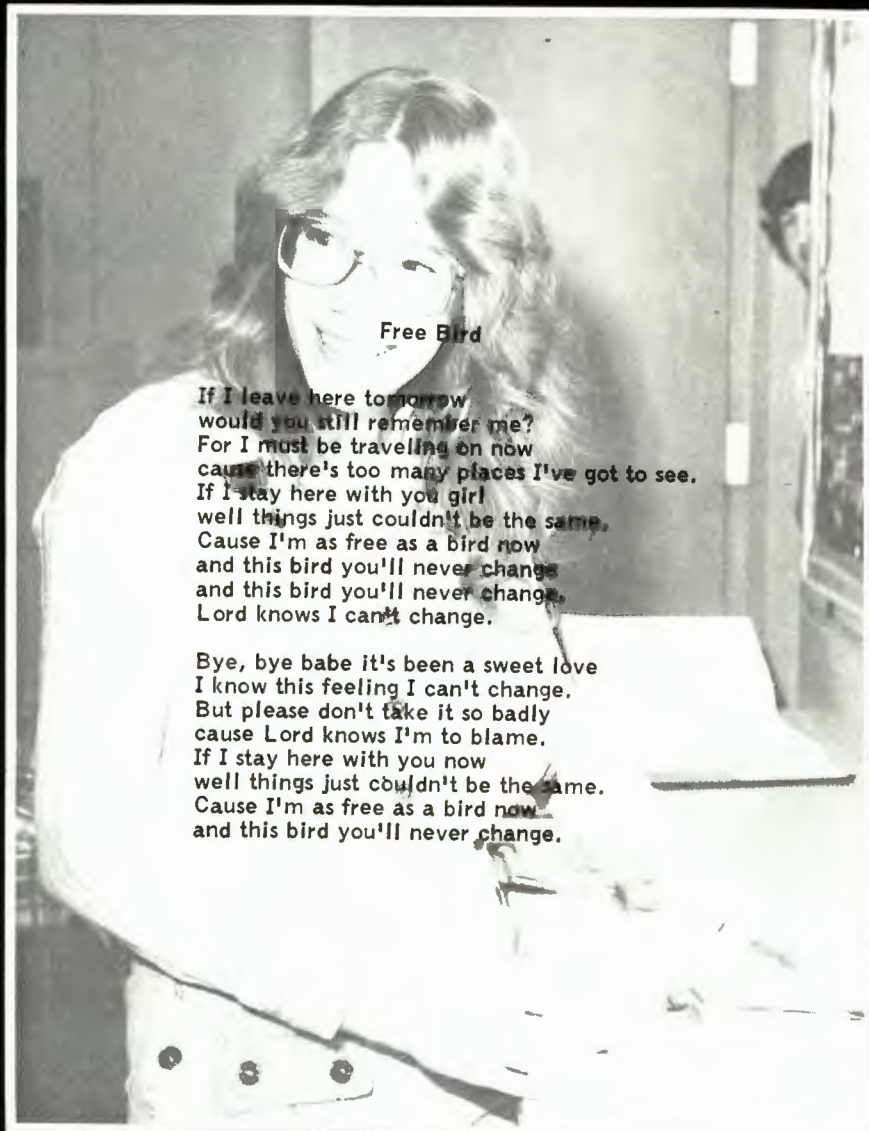 Free Bird
If I leave here tomorrow
would you still remember me?
For I must be traveling on now
cause there's too many places I've got to see.
If I stay here with you girl
well things just couldn't be the same.
Cause I'm as free as a bird now
and this bird you'll never change
and this bird you'll never change.
Lord knows I can't change.
Bye, bye babe it's been a sweet love
I know this feeling I can't change.
But please don't take it so badly
cause Lord knows I'm to blame.
If I stay here with you now
well things just couldn't be the same.
Cause I'm as free as a bird now
and this bird you'll never change.